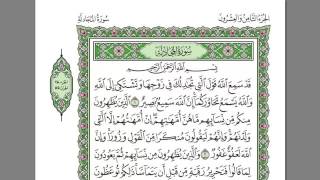 الجزء الثامن والعشرون
سورة المجادلة
سورة المجادلة
بسم الله الرحمن الرحيم
قد سمع الله قول التي تجدلك في زوجها وتشتكي إلى
الله والله يسمع تحاوركما إن الله سميع بصير ۝ الذين يظهرون
منكم من نسائهم ما هن أمهتهم إن أمهتهم إلا الئي
ولدنهم وإنهم ليقولون منكرا من القول وزورا وإن
الله لعفو غفور ۝ والذين يظهرون من نسائهم ثم يعودون
لما قالوا فتحرير رقبة من قبل أن يتماسا ذلكم توعظون